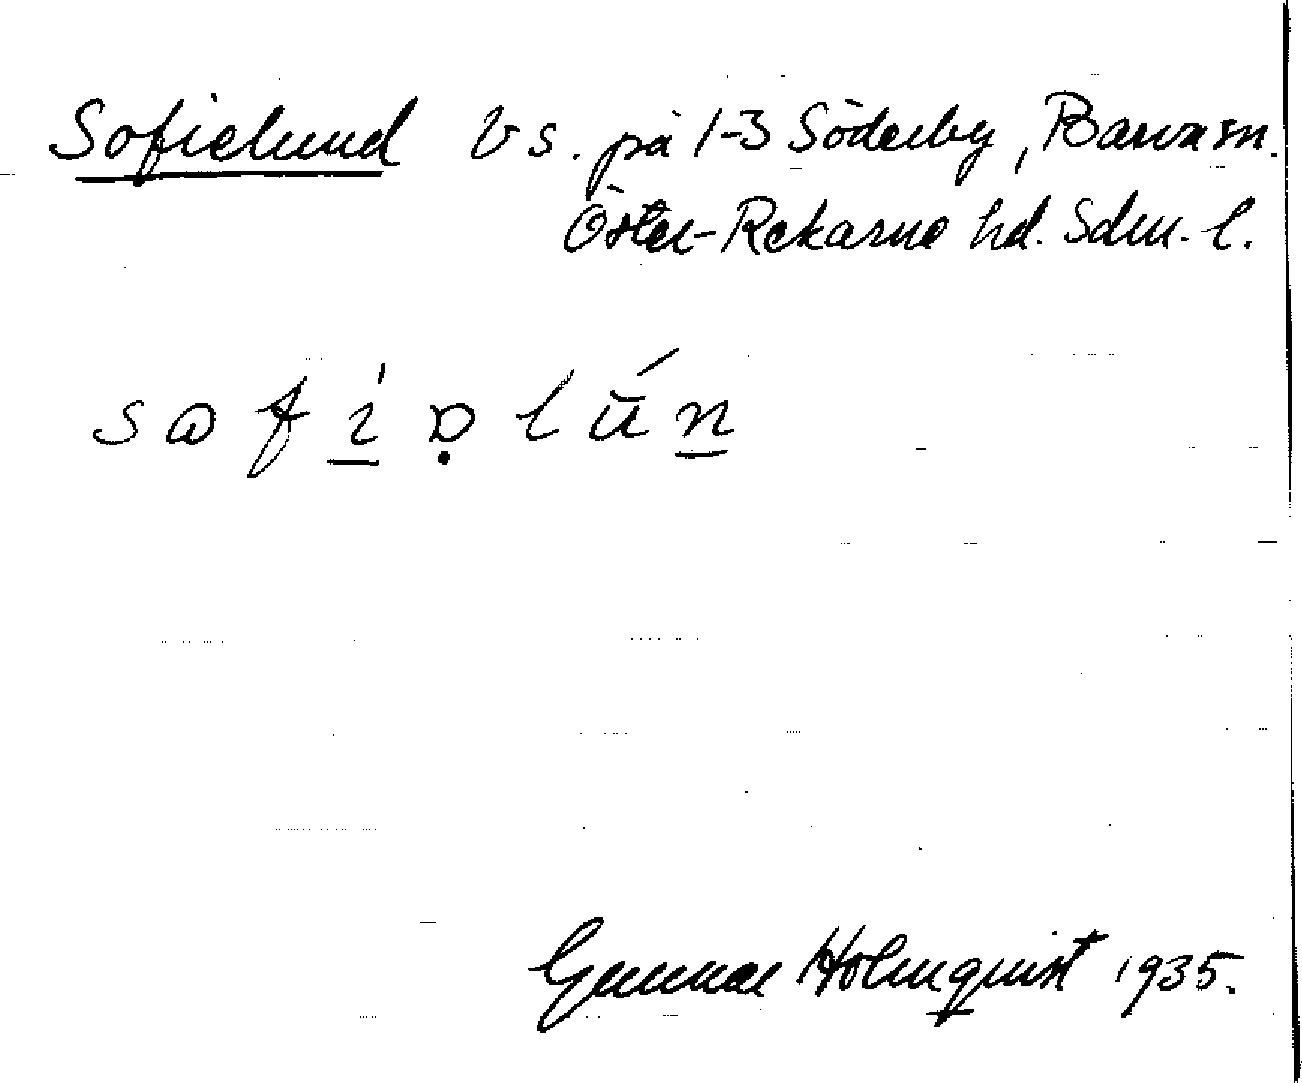 Sofielund Vs. på 1-3 Söderby, Barva sn.
Öster-Rekarne hd. Sdm. l.
Gunnar Holmquist 1935.